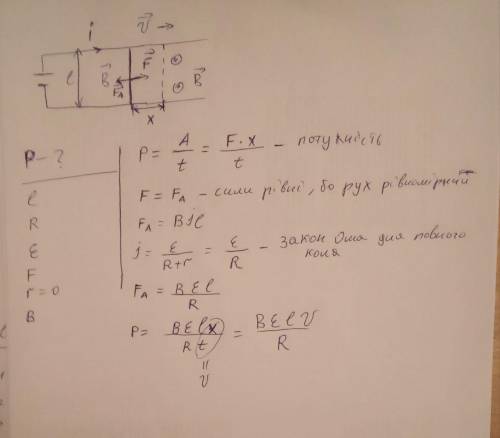 i v⃗ →
l B⃗ F⃗ B⃗
F_A
x
P - ?
l
R
ε
F
r = 0
B
P = A/t = F·x/t - потужність
F = F_A - сили рівні, бо рух рівномірний
F_A = Bil
i = ε/(R+r) = ε/R - закон Ома для повного
кола
F_A = Bεl/R
P = Bεlx/Rt = Bεlv/R
=
v